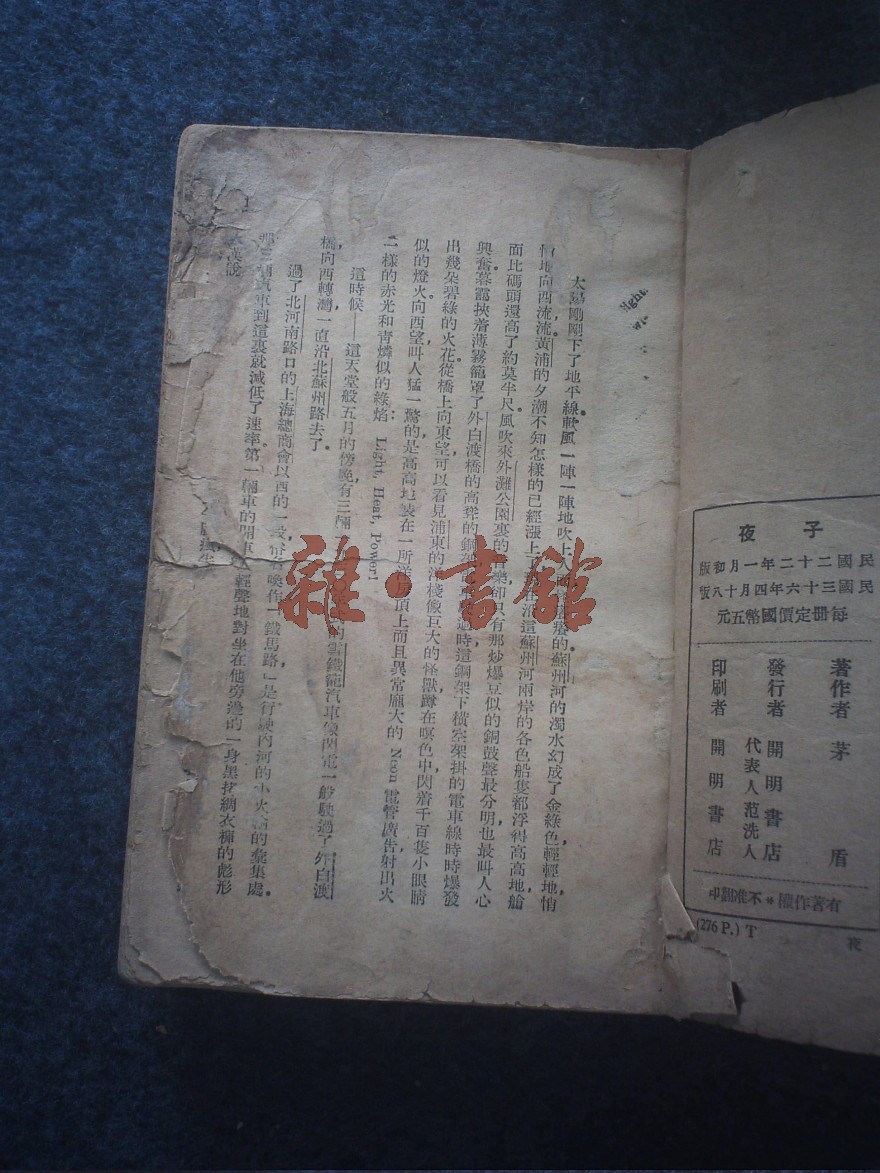 太陽剛剛下了地平線。軟風一陣一陣地吹上人癢的。蘇州河的濁水幻成了金綠色,輕輕地,悄
悄地,向西流流。黃浦的夕潮不知怎樣的已經漲上了,沿這蘇州河兩岸的各色船隻都浮得高高地,艙
面比碼頭還高了約莫半尺。風吹來外灘公園裏的音樂,卻只有那炒爆豆似的銅鼓聲最分明,也最叫人心
興奮。暮靄挾着薄霧籠罩了外白渡橋的高聳的鋼架,時,這鋼架下橫空架掛的電車線時時爆發
出幾朵碧綠的火花。從橋上向東望,可以看見浦東的洋棧像巨大的怪獸,蹲在暝色中,閃着千百隻小眼睛
似的燈火。向西望,叫人猛一驚的,是高高地裝在一所洋房頂上而且異常龐大的 Neon 電管廣告,射出火
一樣的赤光和青燐似的綠焰: Light, Heat, Power!
這時候——這天堂般五月的傍晚,有三輛的雪鐵籠汽車像閃電一般駛過了外白渡
橋,向西轉灣,一直沿北蘇州路去了。
過了北河南路口的上海總商會以西的一段,俗名喚作「鐵馬路」,是行駛內河的小火輪的彙集處。
那三輛汽車到這裏就減低了速率。第一輛車的開車輕聲地對坐在他旁邊的一身黑拷綢衣褲的彪形
大漢說
Light
子夜
民國二十二年一月初版
民國三十六年四月十八版
每冊定價國幣五元
著作者 茅盾
發行者 開明書店
代表人范洗人
印刷者 開明書店
有著作權*不准翻印
(276 P.) T
夜
雜·書館